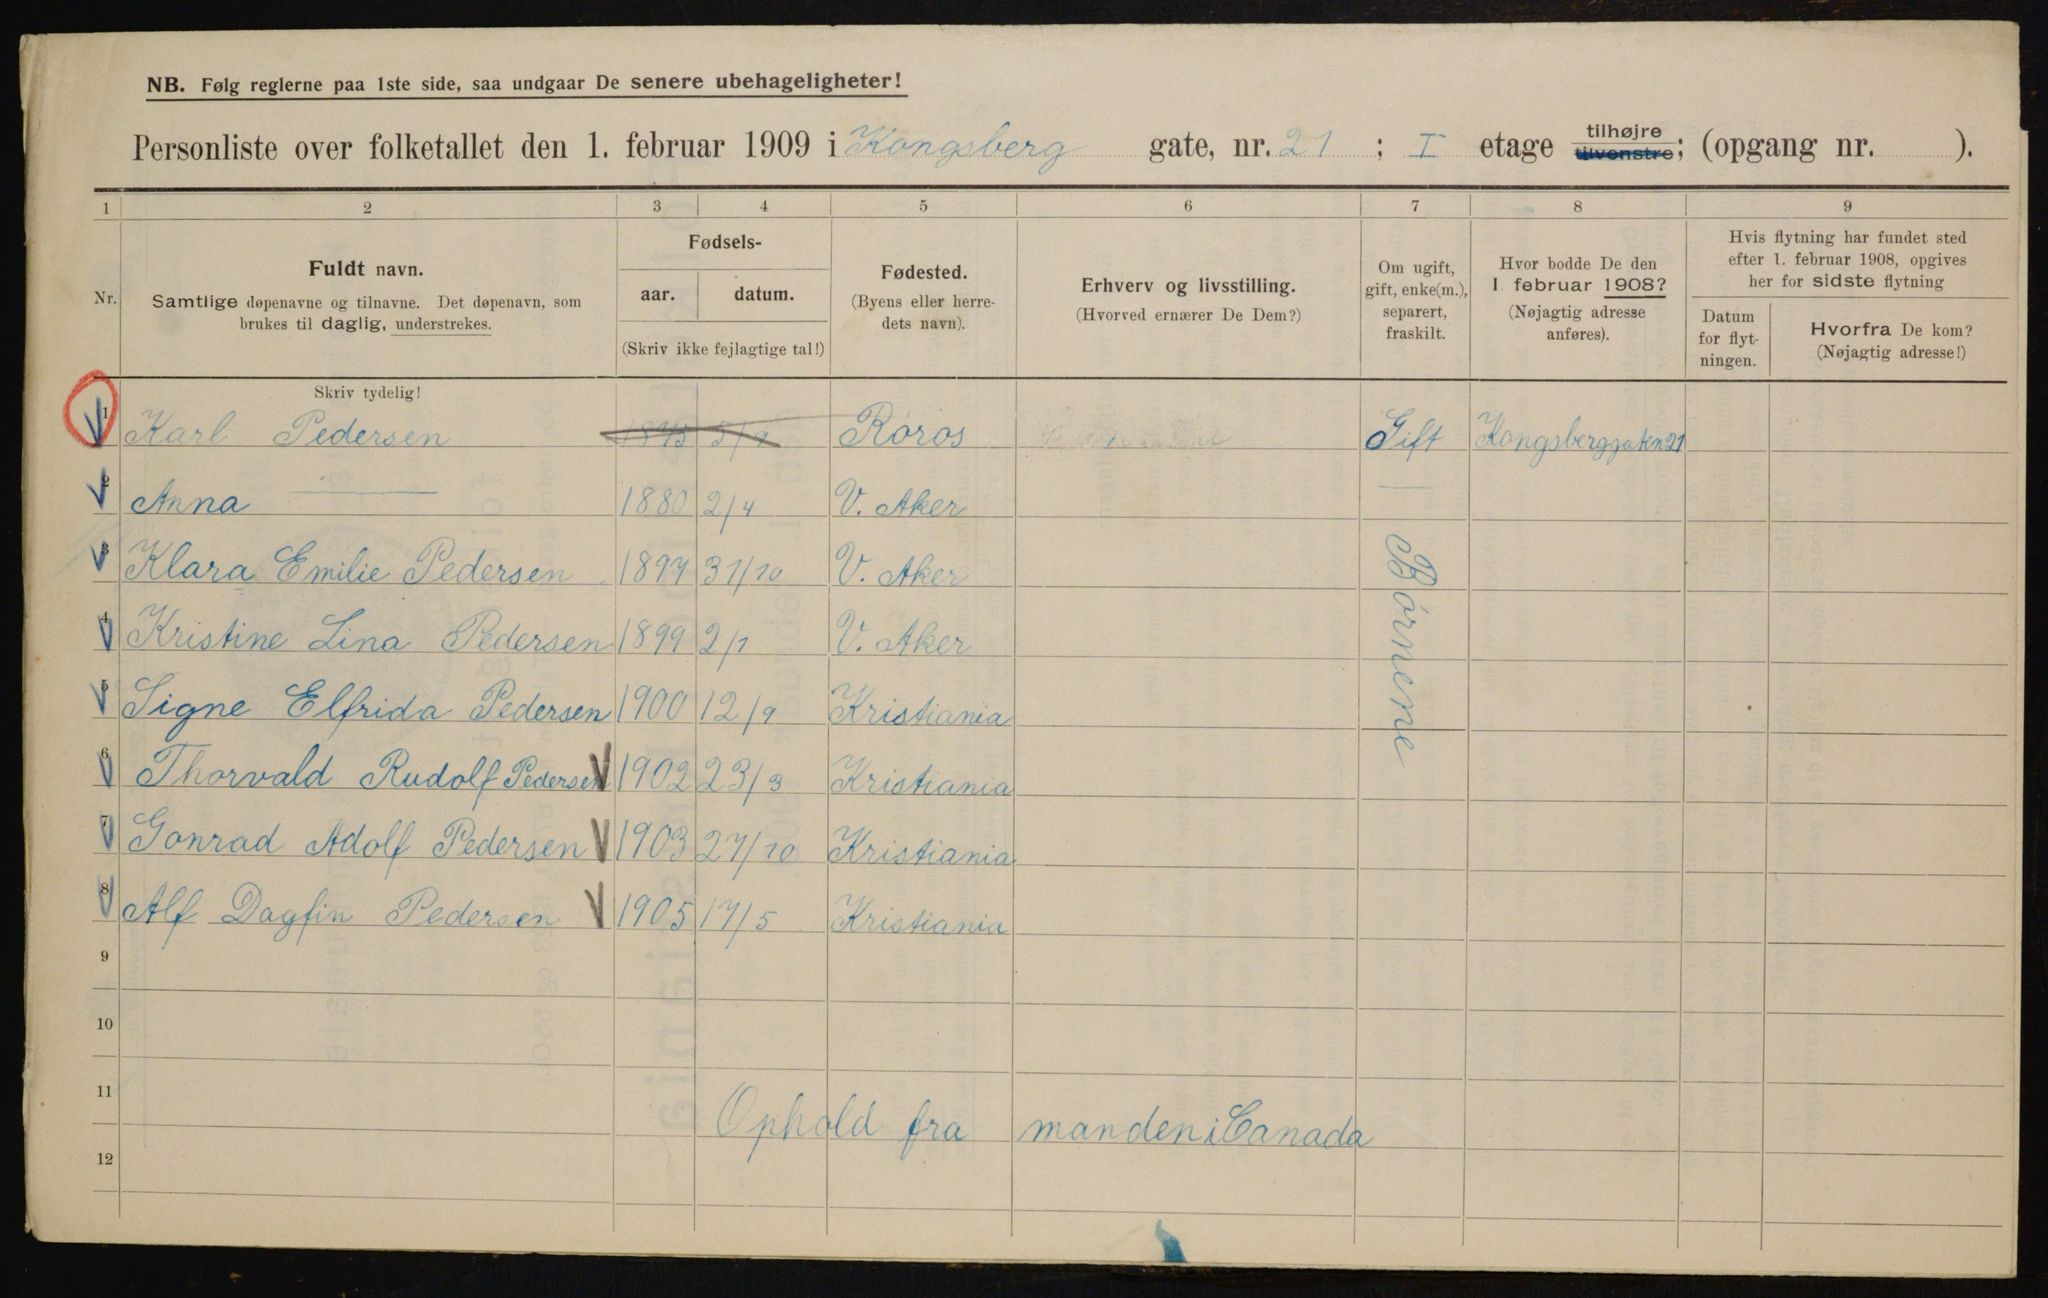 NB. Følg reglerne paa 1ste side, saa undgaar De senere ubehageligheter!
Personliste over folketallet den 1. februar 1909 i Kongsberg gate, nr. 21 ; I etage tilhøjre tilvenstre; (opgang nr. ).
1 2 3 4 5 6 7 8 9
Nr.
Fuldt navn.
Samtlige døpenavne og tilnavne. Det døpenavn, som
brukes til daglig, understrekes.
Fødsels-
aar. datum.
(Skriv ikke fejlagtige tal!)
Fødested.
(Byens eller herre-
dets navn).
Erhverv og livsstilling.
(Hvorved ernærer De Dem?)
Om ugift,
gift, enke(m.),
separert,
fraskilt.
Hvor bodde De den
1. februar 1908?
(Nøjagtig adresse
anføres).
Hvis flytning har fundet sted
efter 1. februar 1908, opgives
her for sidste flytning
Datum
for flyt-
ningen.
Hvorfra De kom?
(Nøjagtig adresse!)
Skriv tydelig!
1 Karl Pedersen Röros Gift Kongsberggaten 21
2 Anna — 1880 2/4 V. Aker |
3 Klara Emilie Pedersen 1897 31/10 V. Aker
4 Kristine Lina Pedersen 1899 2/1 V. Aker
5 Signe Elfrida Pedersen 1900 12/9 Kristiania
6 Thorvald Rudolf Pedersen 1902 23/3 Kristiania
7 Gonrad Adolf Pedersen 1903 27/10 Kristiania
8 Alf Dagfin Pedersen 1905 17/5 Kristiania
Börnene
9
10
11
Ophold fra manden i Canada
12